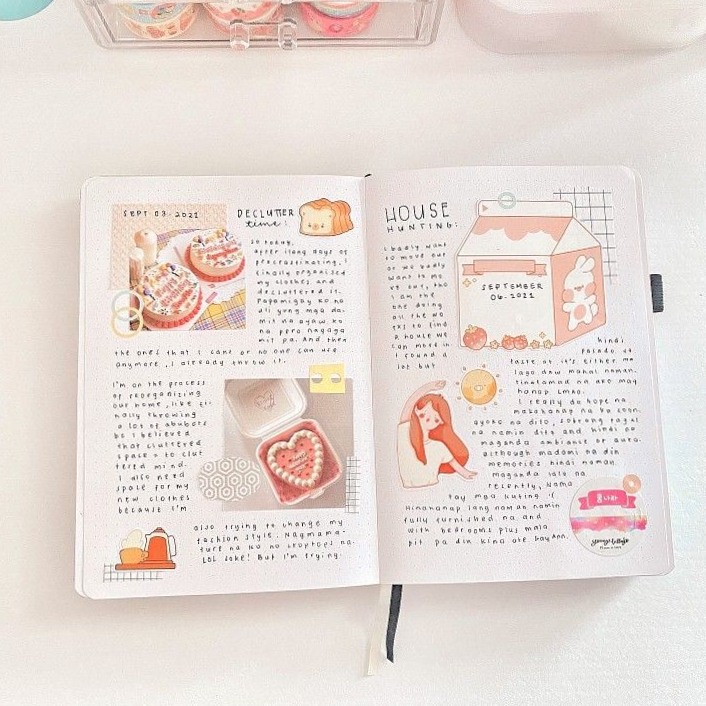 SEPT 03. 2021
DECLUTTER
time:
so today,
after long days of
procrastinating, I
finally organised
my clothes and
decluttered it.
Papamigay ko na
din yong mga da-
mit na ayaw ko
na pero nagaga-
mit pa. And then
the ones that I cant or no one can use
anymore, I already throw it.
I'm on the process
of reorganizing
our home, like fi-
nally throwing
a lot of abubots
bc I believed
that cluttered
space = to clut-
tered mind.
I also need
space for my
new clothes
because I'm
also trying to change my
fashion style. Nagmama-
ture na No no croptops na.
LOL joke! But I'm trying.
HOUSE
HUNTING:
I badly want
to move out
or we badly
want to mo-
ve out, tho
I am the
one doing
all the wo
to find
a house we
can move in.
I found a
lot but
SEPTEMBER
06.2021
hindi
pasado sa
taste at it's either ma
lago daw mahal naman.
Tinatamad na ako mag
hanap Lmao.
I really do hope na
makahanap na ko soon.
ayoko na dito, sobrang tagal
na namin dito and hindi na
maganda ambiance or aura.
although madami na din
memories hindi naman.
maganda lala na
recently, Nama-
tay mga kuting :(
Hinahanap lang naman namin
fully furnished na and
with bedrooms plus mala
pit pa din kina ate GayAnn.